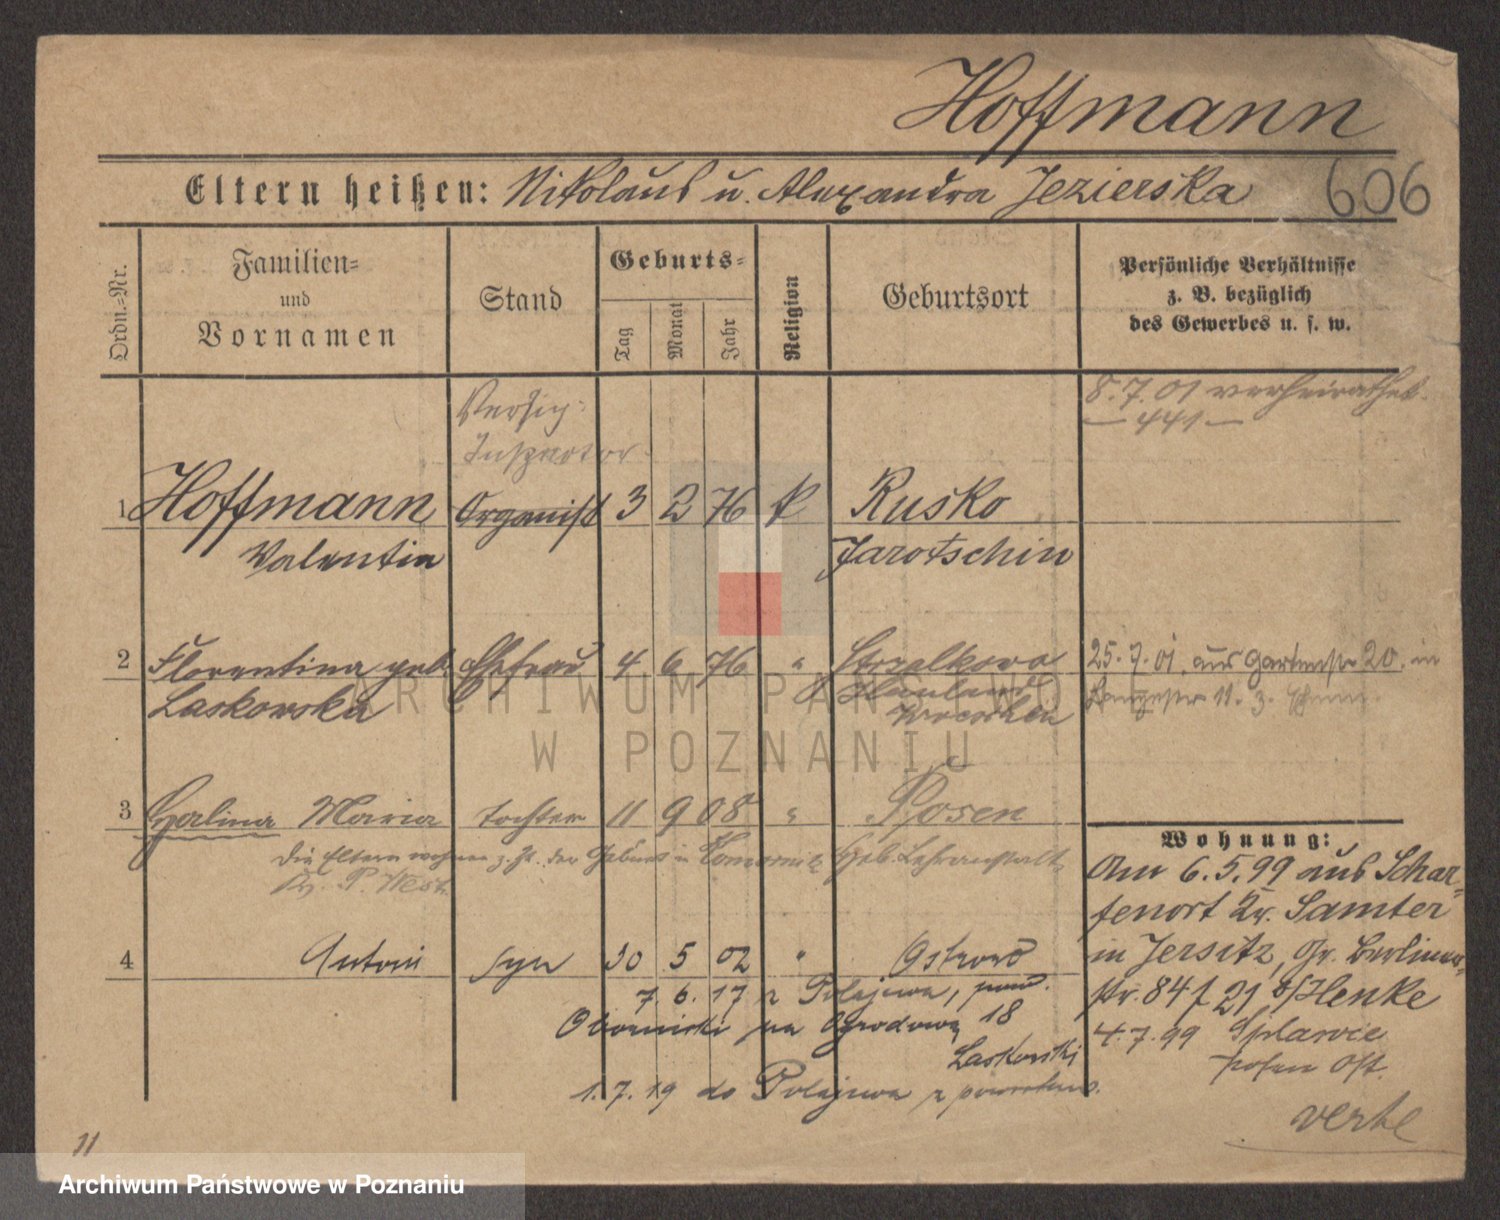 Hoffmann
Eltern heißen: Nikolaus u. Alexandra Jezierska
606
Ordn.-Nr.
Familien-
und
Vornamen
Stand
Geburts-
Tag
Monat
Jahr
Religion
Geburtsort
Persönliche Verhältnisse
z. B. bezüglich
des Gewerbes u. s. w.
8.7.01 verheirathet.
— 441 —
Inspector
1 Hoffmann Organist 3 2 76 k Rusko
Valentin Jarotschin
2 Florentina geb. Ehefrau 4 6 76 " Strzalkowo
Laskowska
Wreschen
25.7.01. aus Gartenstr 20. in
11. 3.
3 Halina Maria tochter 11 9 08 " Posen
Die Eltern wohnen z. Zt. der Geburt in
Kr. P. West. Heb. Lehranstalt
4 Antoni syn 30 5 02 " Ostrowo
7. 6. 17 z Polajewa, pow.
Obornicki na Ogrodową 18
Laskowski
1. 7. 19 do Polajewa z powrotem.
Wohnung:
Am 6.5.99 aus Schar-
fenort Kr. Samter
in Jersitz, Gr. Berliner-
str. 84 f 21 b/Henke
4.7.99 Splawie
Posen Ost.
verte
11
ARCHIWUM PAŃSTWOWE
W POZNANIU
Archiwum Państwowe w Poznaniu